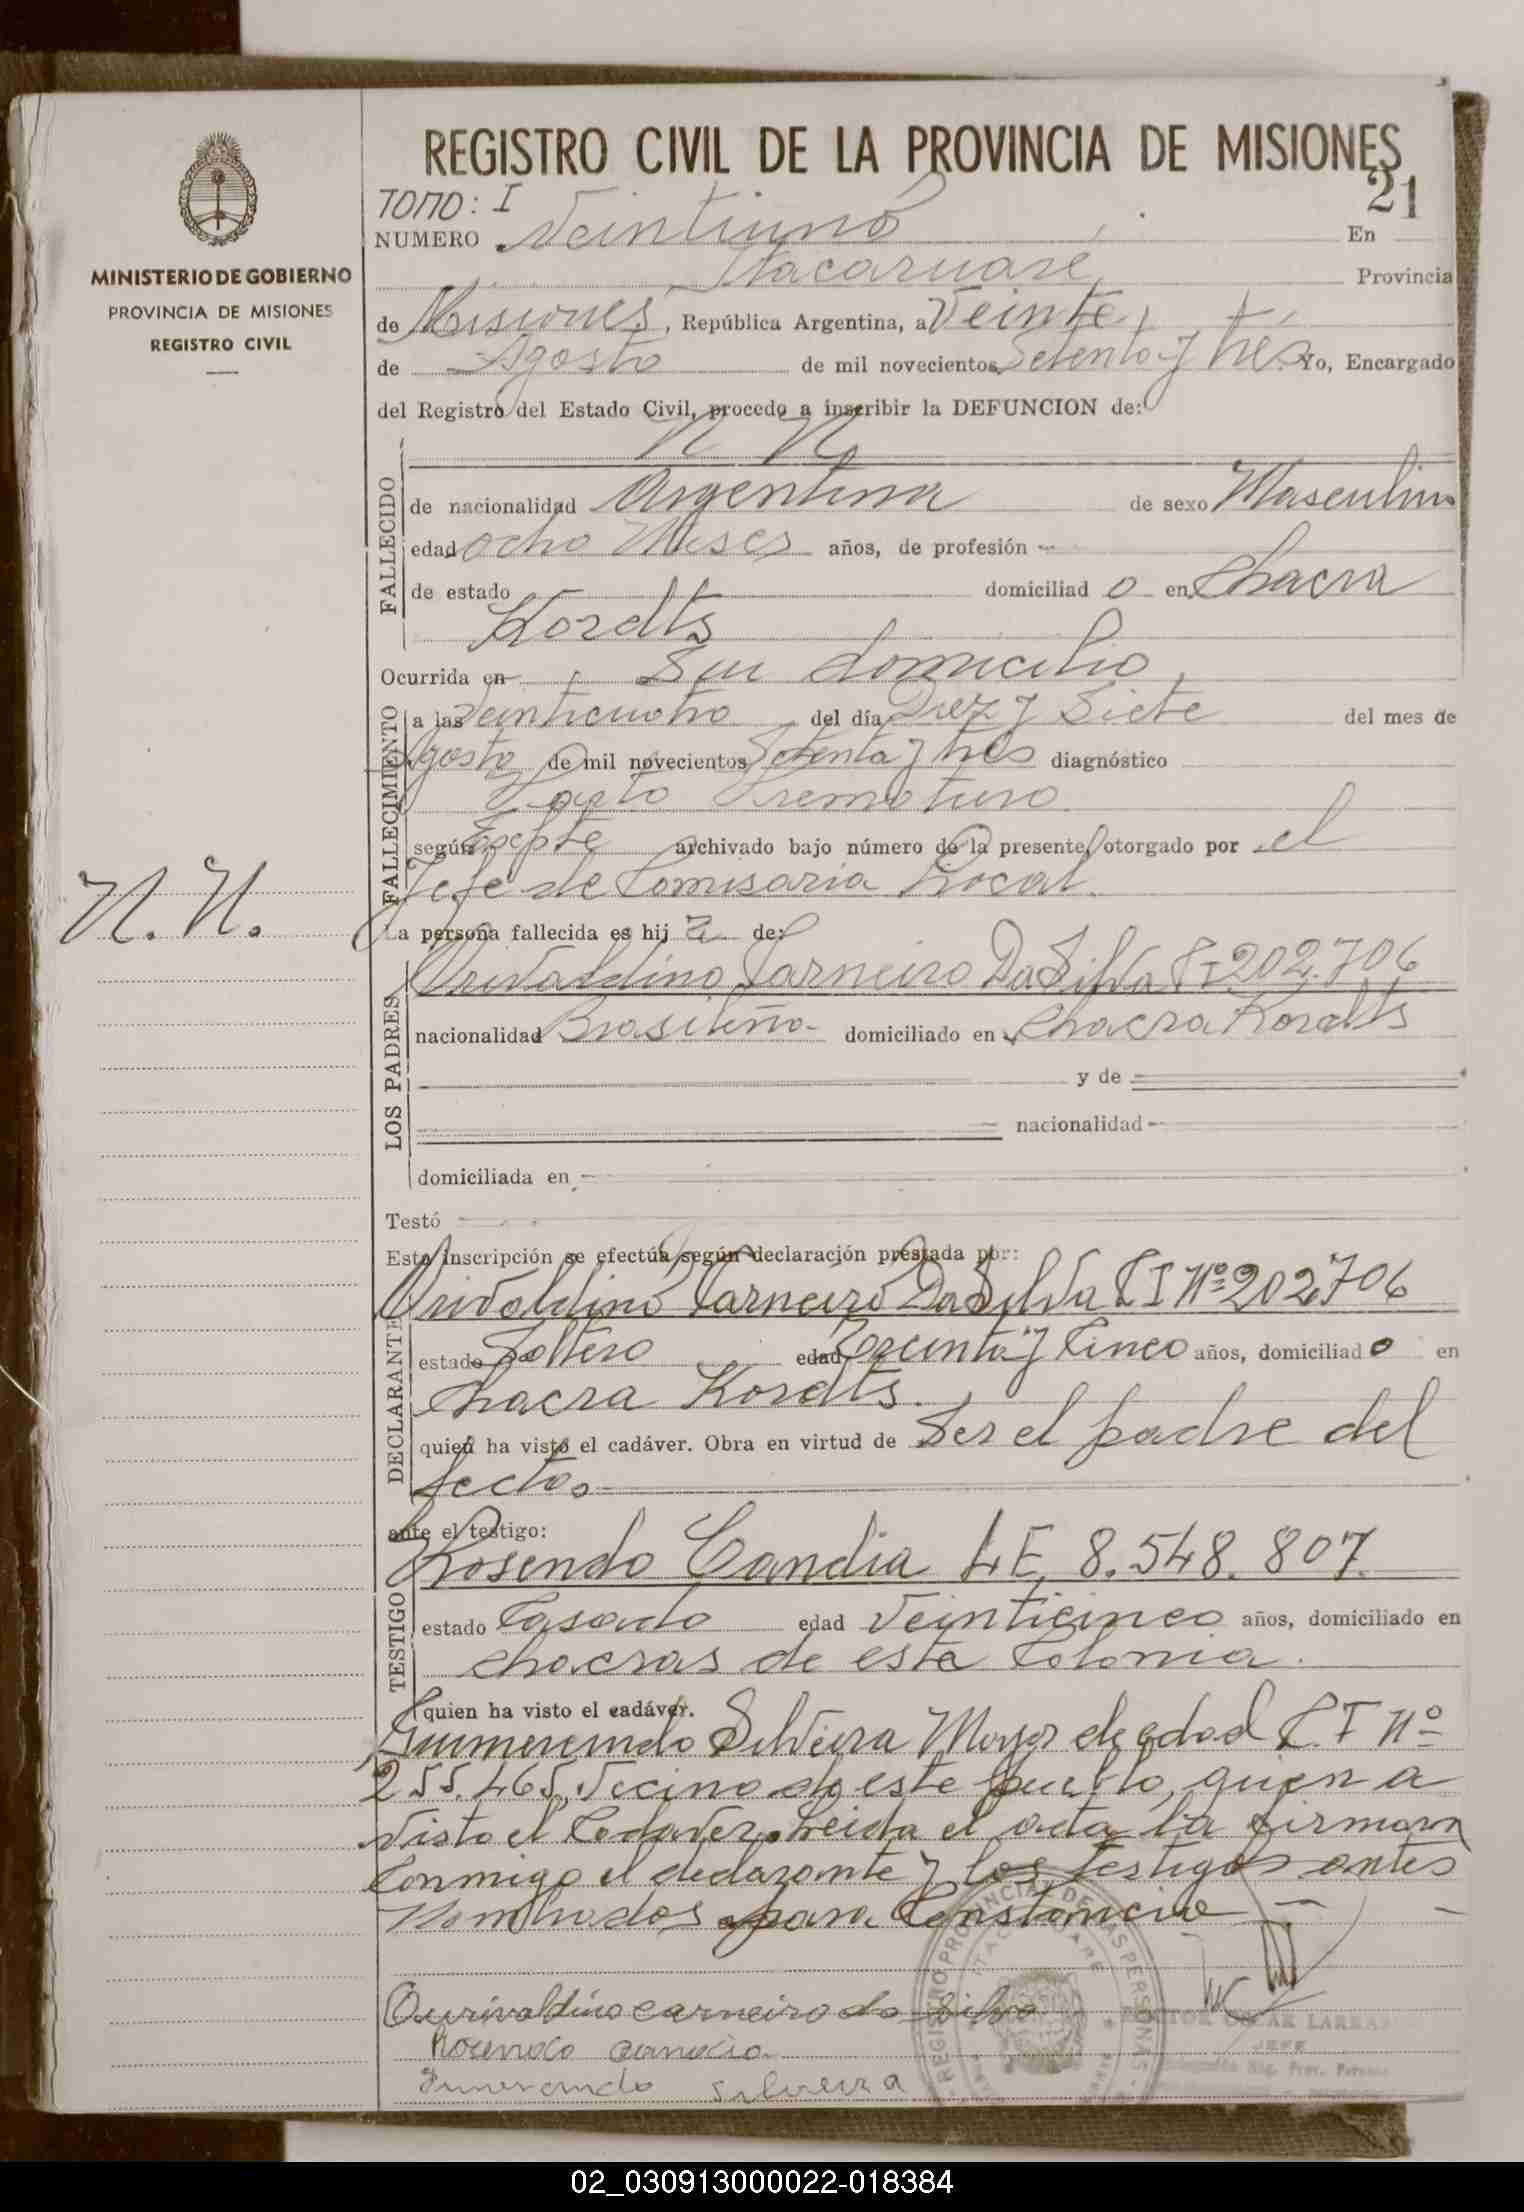 REGISTRO CIVIL DE LA PROVINCIA DE MISIONES
MINISTERIO DE GOBIERNO
PROVINCIA DE MISIONES
REGISTRO CIVIL
TOMO: I
21
NUMERO Veintiuno En
Itacaruaré Provincia
de Misiones, República Argentina, a Veinte
de Agosto de mil novecientos Setenta y tres Yo, Encargado
del Registro del Estado Civil, procedo a inscribir la DEFUNCION de:
N N
FALLECIDO
de nacionalidad Argentina de sexo Masculino
edad ocho Meses años, de profesión -
de estado domiciliado en Chacra
Kordts
Ocurrida en Su domicilio
FALLECIMIENTO
a las Veinticuatro del día Diez y Siete del mes de
Agosto de mil novecientos Setenta y tres diagnóstico
Parto Prematuro
según archivado bajo número de la presente, otorgado por el
Jefe de Comisaria Local.
N. N.
La persona fallecida es hij de:
LOS PADRES
Orivaldino Carneiro Da Silva C I 202.706
nacionalidad Brasileña - domiciliado en Chacra Kordts
y de
nacionalidad -
domiciliada en -
Testó
Esta inscripción se efectúa según declaración prestada por:
DECLARANTE
Orivaldino Carneiro Da Silva C I Nº 202706
estado Soltero edad Torcinta y Cinco años, domiciliado en
Chacra Kordts.
quien ha visto el cadáver. Obra en virtud de Ser el padre del
fectos
ante el testigo:
TESTIGO
Rosendo Candia L E 8.548.807.
estado Casado edad Veinticinco años, domiciliado en
chacras de esta Colonia.
quien ha visto el cadáver.
Gumercindo Silveira Mayor de edad C. I Nº
255.465, Vecino de este pueblo, quien a
Visto el Cadaver. Leida el acta la firman
Conmigo el declarante y los testigos antes
Nombrados para Constancia -
Ourivaldino carneiro da Silva
Rosendo candia
silveira
REGISTRO PROVINCIAL DE LAS PERSONAS
ITACARUARE
OSCAR LARRA
JEFE
02_030913000022-018384